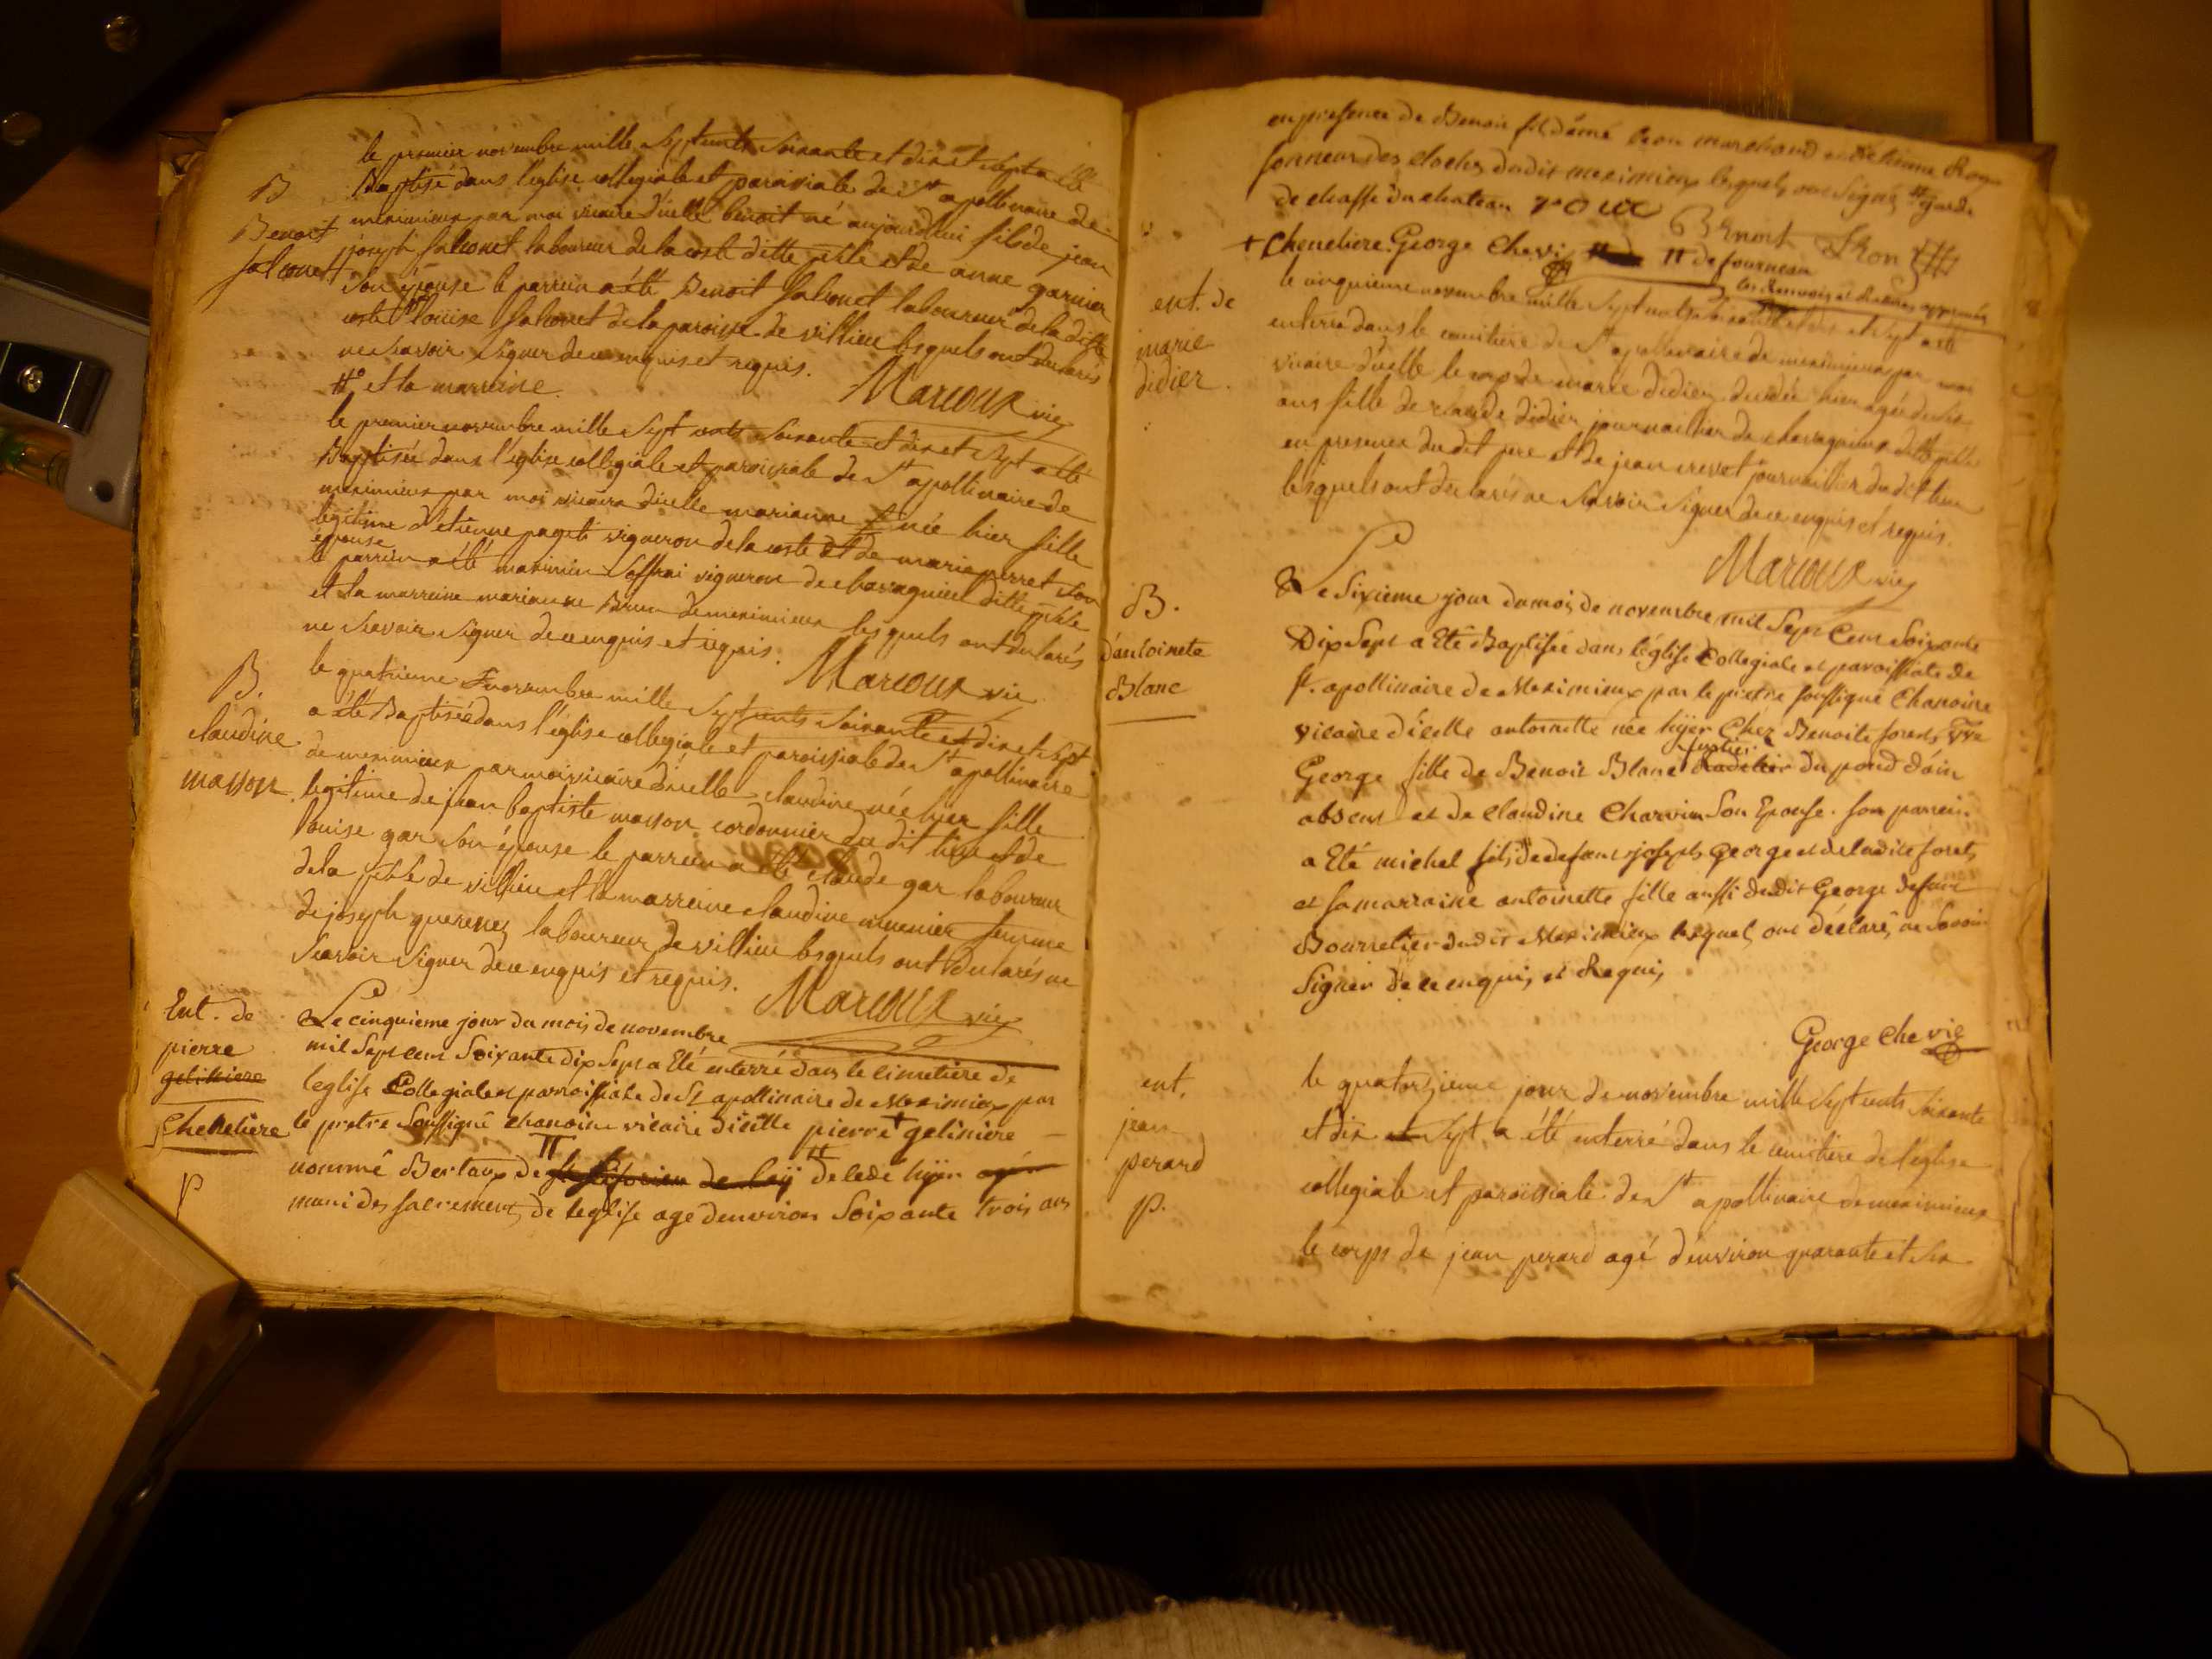 le premier novembre mille Sept cents Soixante et dix et Sept a été
B
Baptisé dans l'église collegiale et paroissiale de St apollinaire de
Benoit
meximieux par moi vicaire d'icelle benoit né aujourdhui fils de jean
joseph laboureur de la coste ditte pssse et de anne garnier
Son épouse le parrein a été Benoit laboureur de la ditte
coste # louise de la paroisse de villieu lesquels ont declarés
ne Savoir Signer de ce enquis et requis.
# et la marreine.
Marcoux vic
le premier novembre mille Sept cents Soixante et dix et Sept a été
Baptisée dans l'église collegiale et paroissiale de St apollinaire de
meximieux par moi vicaire d'icelle marianne née hier fille
legitime d'etienne vigneron de la coste et de marie perret Son
épouse
le parrein a été maximin vigneron de chavagnieu ditte pssse
et la marreine marianne Brun de meximieux lesquels ont declarés
ne Scavoir Signer de ce enquis et requis.
Marcoux vic
B.
le quatrieme novembre mille Sept cents Soixante et dix et Sept
a été Baptisée dans l'église collegiale et paroissiale de St apollinaire
claudine
de meximieux par moi vicaire d'icelle claudine née hier fille
masson
legitime de jean baptiste masson cordonnier du dit lieu et de
louise gar Son épouse le parrein a été claude gar laboureur
de la pssse de villieu et la marreine claudine munier femme
de joseph laboureur de villieu lesquels ont declarés ne
Scavoir Signer de ce enquis et requis.
Marcoux vic
Ent. de
Le cinquieme jour du mois de novembre
pierre
mil Sept cens Soixante dix Sept a Eté enterré dans le cimetiere de
geliniere
l'eglise Collegiale et parroissiale de St apollinaire de Meximieux par
Cheneliere
le pretre Soussigné chanoine vicaire d'icelle pierre + geliniere
nommé Bertaux de decedé hijer agé
muni des sacremens de l'eglise agé d'environ Soixante trois ans
P
en presence de Benoit fils d'émé marchand et d'etienne
sonneur des cloches dudit meximieux lesquels ont Signé # garde
de chasse du chateau roux Benoit
+ Cheneliere. George Chevie # de fourneau
ent. de
marie
didier.
le cinquieme novembre mille Sept cents Soixante et dix et Sept a été
enterré dans le cimitiere de St apollinaire de meximieux par moi
vicaire d'icelle le corps de marie didier decedée hier agée de six
ans fille de claude didier journaillier de chavagnieux ditte pssse
en presence du dit pere et de jean crevet journaillier du dit lieu
lesquels ont declarés ne Scavoir Signer de ce enquis et requis.
Marcoux vic
B.
d'antoinete
Blanc
Le Sixieme jour du mois de novembre mil Sept Cens Soixante
Dix Sept a Eté Baptisée dans l'église Collegiale et parroissiale de
st. apollinaire de Meximieux par le pretre soussigné Chanoine
vicaire d'icelle antoinette née hijer Chez Benoite forets vve
George fille de Benoit Blanc du pond d'ain
absent et de Claudine Charvin Son Epouse. son parrein
a Eté michel fils de defunt joseph George et de ladite forets
et sa marraine antoinette fille aussi dudit George defunt
Bourrelier dudit Meximieux lesquels ont déclaré ne Savoir
Signer de ce enquis et Requis
George Chevie
ent.
jean
perard
P.
le quatorzieme jour de novembre mille Sept cents Soixante
et dix et Sept a été enterré dans le cemitiere de l'eglise
collegiale et paroissiale de St apollinaire de meximieux
le corps de jean perard agé d'environ quarante et Six